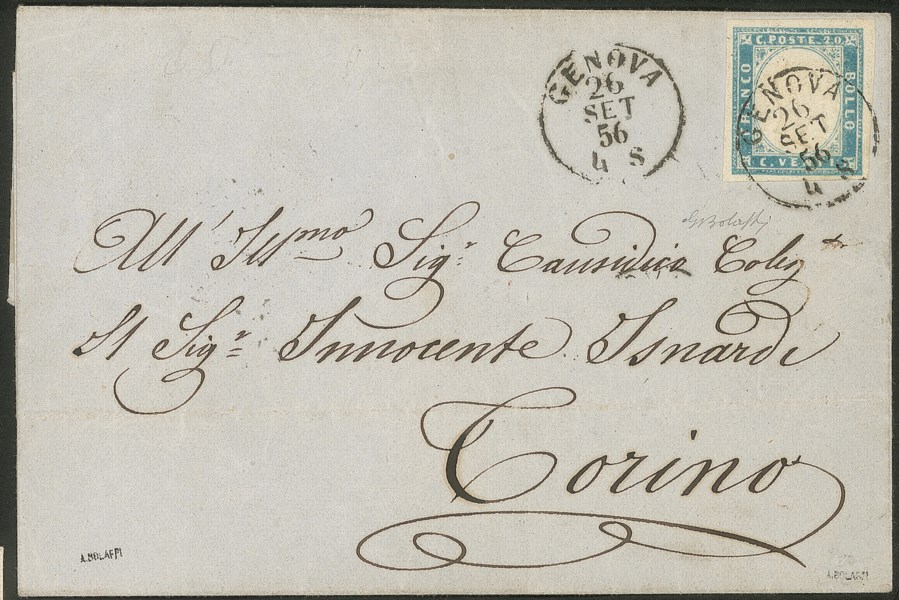 GENOVA
26
SET
56
4 S
C. POSTE 20
FRANCO
BOLLO
C. VE
GENOVA
26
SET
56
4 S
GBolaffi
All' Illmo Sigr. Causidico Colegto
Il Sigr. Innocente Isnardi
Torino
A. BOLAFFI
A. BOLAFFI